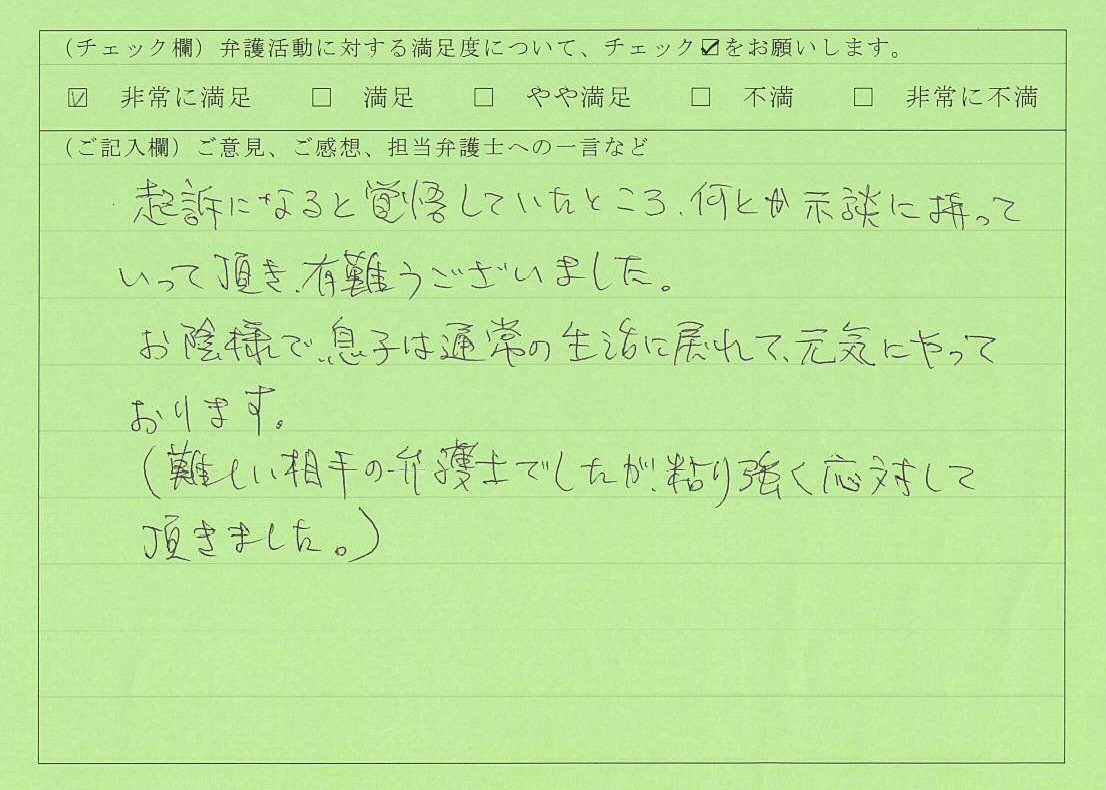 (チェック欄) 弁護活動に対する満足度について、チェック☑をお願いします。
☑ 非常に満足 □ 満足 □ やや満足 □ 不満 □ 非常に不満
(ご記入欄) ご意見、ご感想、担当弁護士への一言など
起訴になると覚悟していたところ、何とか示談に持って
いって頂き、有難うございました。
お陰様で、息子は通常の生活に戻れて、元気にやって
おります。
(難しい相手の弁護士でしたが、粘り強く応対して
頂きました。)